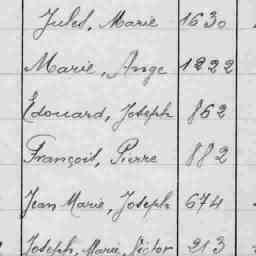 Jules, Marie 1630
Marie, Ange 1222
Édouard, Joseph 862
François, Pierre 882
Jean Marie, Joseph 674
Joseph, Marie, Victor 213